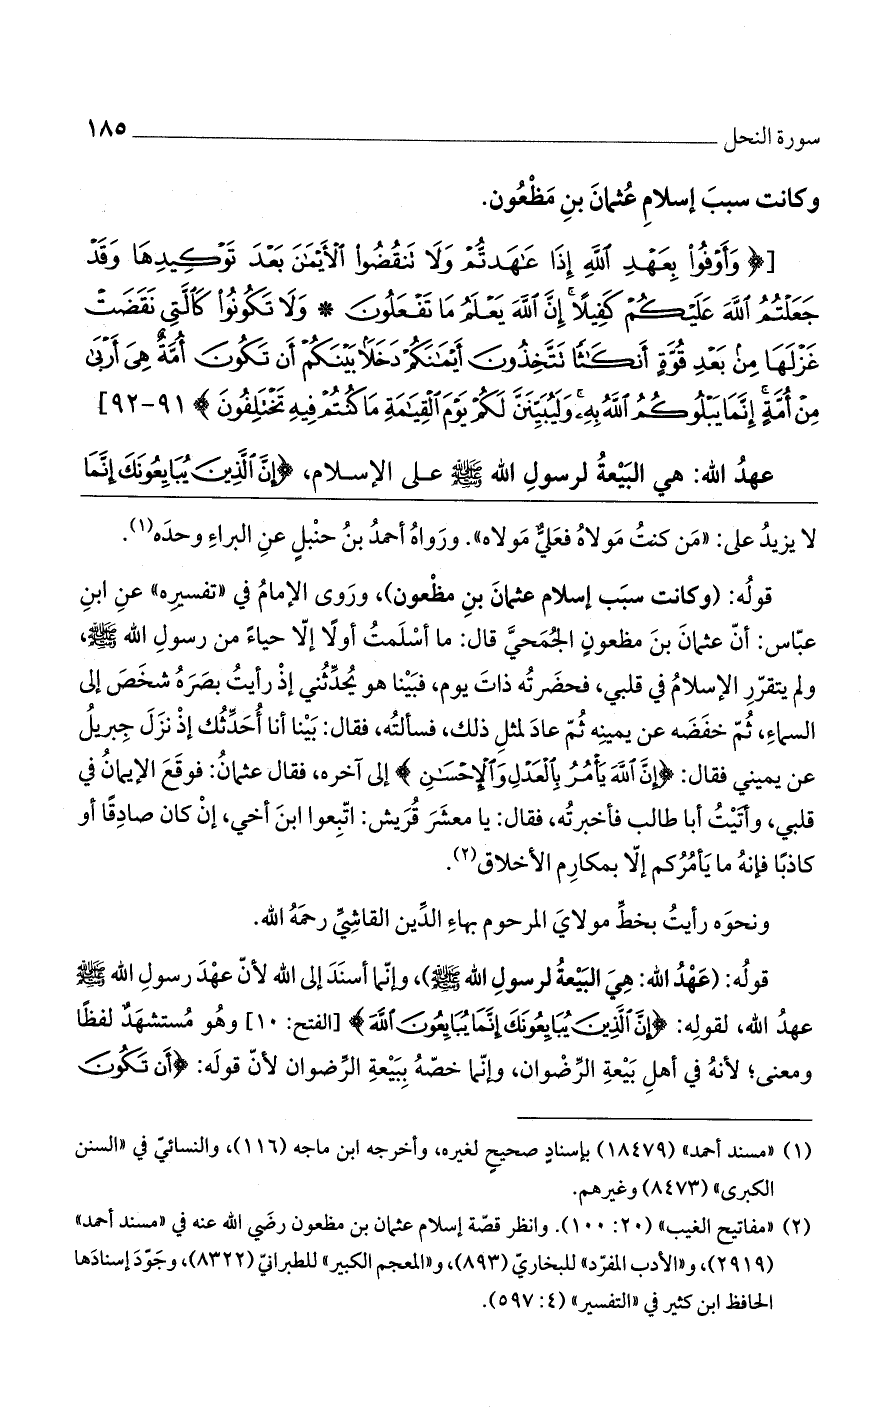 سورة النحل ١٨٥
وكانت سببَ إسلامِ عُثمانَ بنِ مَظْعُون.
[﴿ وَأَوْفُوا۟ بِعَهْدِ ٱللَّهِ إِذَا عَـٰهَدتُّمْ وَلَا تَنقُضُوا۟ ٱلْأَيْمَـٰنَ بَعْدَ تَوْكِيدِهَا وَقَدْ
جَعَلْتُمُ ٱللَّهَ عَلَيْكُمْ كَفِيلًا ۚ إِنَّ ٱللَّهَ يَعْلَمُ مَا تَفْعَلُونَ * وَلَا تَكُونُوا۟ كَٱلَّتِى نَقَضَتْ
غَزْلَهَا مِنۢ بَعْدِ قُوَّةٍ أَنكَـٰثًا تَتَّخِذُونَ أَيْمَـٰنَكُمْ دَخَلًۢا بَيْنَكُمْ أَن تَكُونَ أُمَّةٌ هِىَ أَرْبَىٰ
مِنْ أُمَّةٍ ۚ إِنَّمَا يَبْلُوكُمُ ٱللَّهُ بِهِۦ ۚ وَلَيُبَيِّنَنَّ لَكُمْ يَوْمَ ٱلْقِيَـٰمَةِ مَا كُنتُمْ فِيهِ تَخْتَلِفُونَ ﴾ ٩١-٩٢]
عهدُ الله: هي البَيْعةُ لرسولِ الله ﷺ على الإسلام، ﴿إِنَّ ٱلَّذِينَ يُبَايِعُونَكَ إِنَّمَا
لا يزيدُ على: «مَن كنتُ مَولاهُ فعَليٌّ مَولاه». ورَواهُ أحمدُ بنُ حنْبلٍ عنِ البراءِ وحدَه(١).
قولُه: (وكانت سبَب إسلام عثمانَ بنِ مظْعون)، ورَوى الإمامُ في «تفسيرِه» عن ابنِ
عبّاس: أنّ عثمانَ بنَ مظعونٍ الجُمَحيَّ قال: ما أسْلَمتُ أولًا إلّا حياءً من رسولِ الله ﷺ،
ولم يتقرّرِ الإسلامُ في قلبي، فحضَرتُه ذاتَ يوم، فبَيْنا هو يُحدِّثُني إذْ رأيتُ بصَرَهُ شخَصَ إلى
السماءِ، ثُمّ خفَضَه عن يمينِه ثُمّ عادَ لمثلِ ذلك، فسألتُه، فقال: بَيْنا أنا أُحَدِّثُك إذْ نزَلَ جِبريلُ
عن يميني فقال: ﴿إِنَّ ٱللَّهَ يَأْمُرُ بِٱلْعَدْلِ وَٱلْإِحْسَـٰنِ ﴾ إلى آخره، فقال عثمانُ: فوقَعَ الإيمانُ في
قلبي، وأتَيْتُ أبا طالب فأخبرتُه، فقال: يا معشَرَ قُرَيش: اتّبِعوا ابنَ أخي، إنْ كان صادِقًا أو
كاذبًا فإنهُ ما يَأمُرُكم إلّا بمكارِمِ الأخلاق(٢).
ونحوَه رأيتُ بخطِّ مولايَ المرحوم بهاءِ الدِّين القاشِيِّ رحمَهُ الله.
قولُه: (عَهْدُ الله: هِيَ البَيْعةُ لرسولِ الله ﷺ)، وإنّما أسنَدَ إلى الله لأنّ عهْدَ رسولِ الله ﷺ
عهدُ الله، لقولِه: ﴿إِنَّ ٱلَّذِينَ يُبَايِعُونَكَ إِنَّمَا يُبَايِعُونَ ٱللَّهَ ﴾ [الفتح: ١٠] وهُو مُستشهَدٌ لفظًا
ومعنى؛ لأنهُ في أهلِ بَيْعةِ الرِّضْوان، وإنّما خصّهُ بِبَيْعةِ الرِّضوان لأنّ قولَه: ﴿أَن تَكُونَ
(١) «مسند أحمد» (١٨٤٧٩) بإسنادٍ صحيحٍ لغيره، وأخرجه ابن ماجه (١١٦)، والنسائيّ في «السنن
الكبرى» (٨٤٧٣) وغيرهم.
(٢) «مفاتيح الغيب» (٢٠: ١٠٠). وانظر قصّة إسلام عثمان بن مظعون رضَي الله عنه في «مسند أحمد»
(٢٩١٩)، و«الأدب المفرَد» للبخاريّ (٨٩٣)، و«المعجم الكبير» للطبرانيّ (٨٣٢٢)، وجَوّدَ إسنادَها
الحافظ ابن كثير في «التفسير» (٤: ٥٩٧).